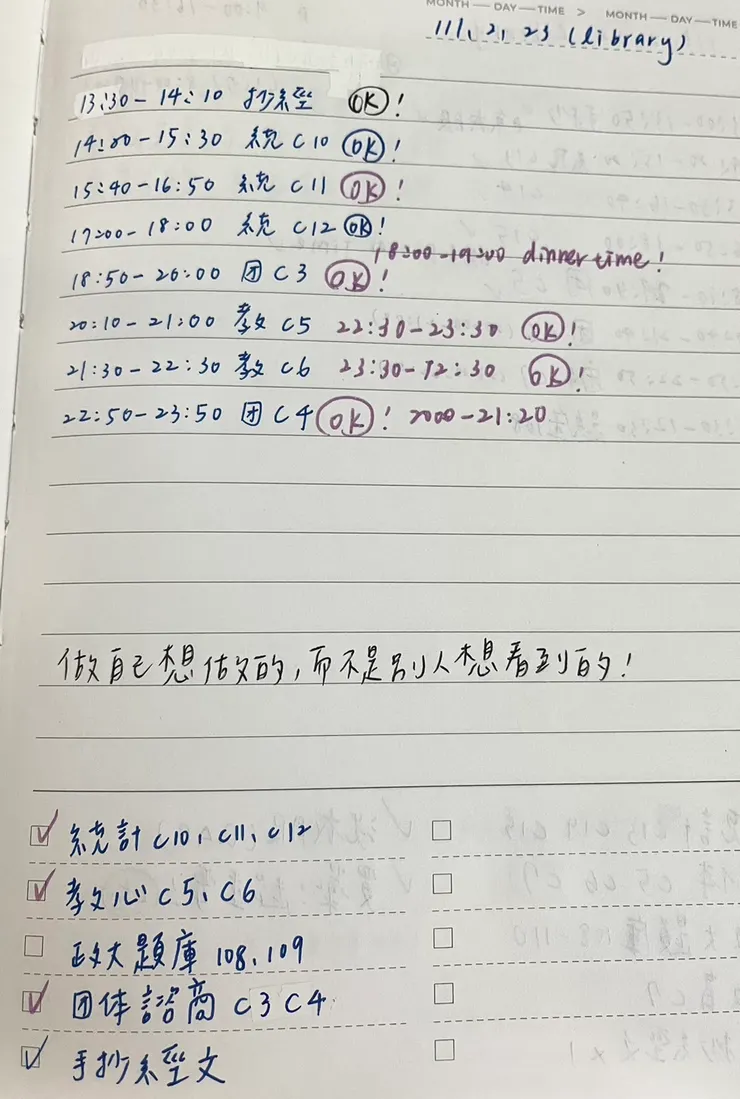 MONTH — DAY — TIME > MONTH — DAY — TIME
111, 2, 23 (library)
13:30 - 14:10 抄經 OK!
14:20 - 15:30 統 C10 OK!
15:40 - 16:50 統 C11 OK!
17:00 - 18:00 統 C12 OK!
18:00 - 19:00 dinner time!
18:50 - 20:00 团 C3 OK!
20:10 - 21:00 教 C5 22:30 - 23:30 OK!
21:30 - 22:30 教 C6 23:30 - 12:30 OK!
22:50 - 23:50 团 C4 OK! 2000 - 21:20
做自己想做的,而不是別人想看到的!
統計 C10、C11、C12
教心 C5、C6
政大題庫 108、109
团体諮商 C3 C4
手抄經文